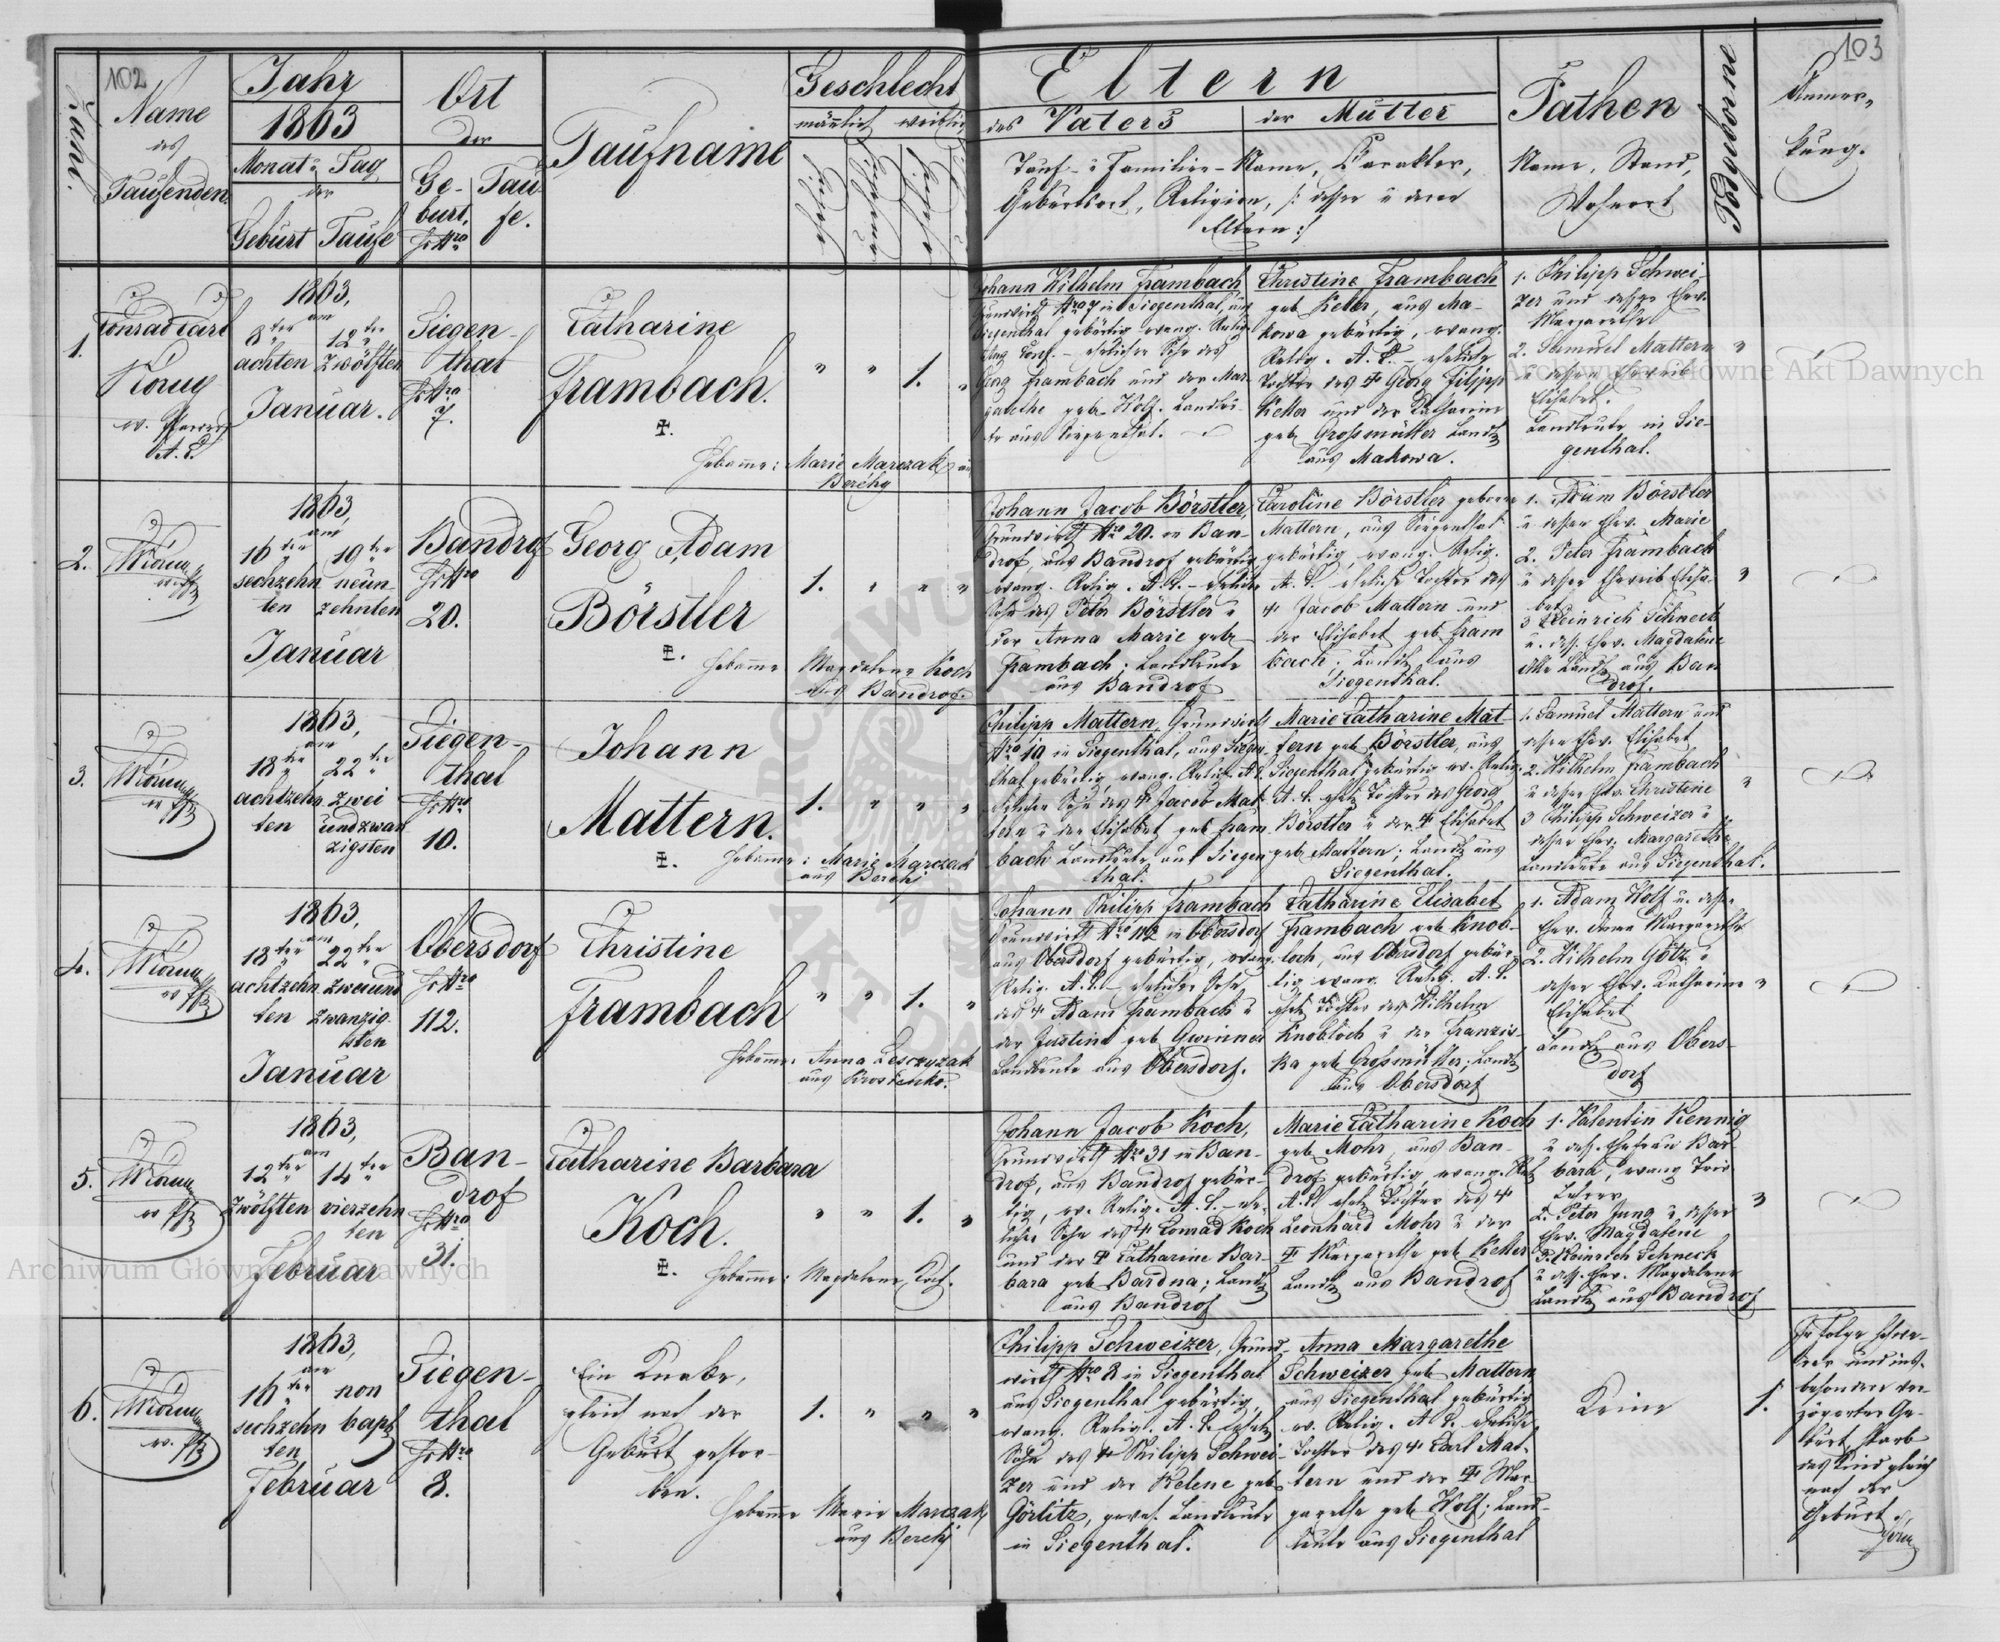 102
103
Zahl.
Name
des
Taufenden
Jahr
1863
Monat u. Tag
der
Geburt Taufe
Ort
der
Geburt, Hs Nro
Taufe.
Taufname
Geschlecht
männlich weiblich
Eltern
des Vaters der Mutter
Tauf- u Familien-Name, Charakter,
Geburtsort, Religion, /: dessen u deren
Eltern :/
Pathen
Name, Stand,
Wohnort
Todtgeborne
Anmerkung.
1.
Conrad Carl
ev. Pfarrer
A. C.
1863,
am
8ten 12ten
achten zwölften
Januar.
Siegen-
thal
Hs Nro
7.
Catharine
Frambach.
" " 1. "
Hebamme: Marie Marczak aus
Berehy
Johann Wilhelm Frambach
Grundwirth Nro 7 in Siegenthal, aus
Siegenthal gebürtig evang. Relig.
Augs. Conf. – ehelicher Sohn des
Georg Frambach und der Mar-
garethe geb. Wolf. Landleu-
te aus Siegenthal.
Christine Frambach
geb Keller, aus Ma-
kowa gebürtig, evang.
Relig. A. C. – eheliche
Tochter des Georg Filipp
Keller und der Katharine
geb Großmütter Landl.
aus Makowa.
1. Philipp Schwei-
zer und dessen Ehew.
Margarethe
2. Samuel Mattern
u dessen Eheweib
Elisabet.
Landleute in Sie-
genthal.
2.
1863,
am
16ten 19ten
sechzehn neun-
ten zehnten
Januar
Bandrof
Hs Nro
20.
Georg Adam
Börstler
1. " " "
Hebamme Magdalena Koch
aus Bandrof.
Johann Jacob Börstler,
Grundwirth Nro 20. in Ban-
drof, aus Bandrof gebürtig
evang. Relig. A. C. – ehelicher
Sohn des Peter Börstler u
der Anna Marie geb
Frambach; Landleute
aus Bandrof
Caroline Börstler geborne
Mattern, aus Siegenthal
gebürtig, evang. Relig.
A. C. eheliche Tochter des
Jacob Mattern und
der Elisabet geb Fram
bach; Landl. aus
Siegenthal.
1. Adam Börstler
u dessen Ehew. Marie
2. Peter Frambach
u dessen Eheweib Elisa-
bet
3 Heinrich Schneck
u. dess. Ehew. Magdalene
Alle Landl. aus Ban
drof.
3.
1863,
am
18te 22te
achtzehn zwei
ten undzwan
zigsten
Siegen-
thal
Hs Nro
10.
Johann
Mattern.
1. " " "
Hebamme: Marie Marczak
aus Berehy
Philipp Mattern, Grundwirth
Nro 10 in Siegenthal, aus Siegen-
thal gebürtig, evang. Relig. A. C.
ehelicher Sohn des Jacob Mat-
tern u der Elisabet geb Fram
bach Landleute, aus Siegen
thal.
Marie Catharine Mat-
tern geb Börstler, aus
Siegenthal gebürtig ev. Relig.
A. C. ehel. Tochter des Georg
Börstler u der Elisabet
geb Mattern; Landl. aus
Siegenthal.
1. Samuel Mattern und
dessen Ehew. Elisabet
2. Wilhelm Frambach
u dessen Ehew. Christine
3 Philipp Schweizer u
dessen Ehew. Margarethe
Landleute aus Siegenthal.
4.
1863,
am
18ten 22ten
achtzehn zweiund
ten zwanzig-
sten
Januar
Obersdorf
Hs Nro
112.
Christine
Frambach
" " 1. "
Hebamme: Anna Lesczyzak
aus Krosienko.
Johann Philipp Frambach
Grundwirth Nro 112 in Obersdorf
aus Obersdorf gebürtig, evang.
Relig. A. C. – ehelicher Sohn
des Adam Frambach u
der Justine geb Gwinner
Landleute aus Obersdorf.
Catharine Elisabet
Frambach geb Knob-
loch, aus Obersdorf gebür-
tig evang. Relig. A. C.
ehel. Tochter des Wilhelm
Knobloch u der Franzis-
ka geb Großmütter; Landl.
aus Obersdorf
1. Adam Wolf u. dessen
Ehew. Anna Margarethe
2. Wilhelm Götz u
dessen Ehew. Katharine
Elisabet
Landl. aus Obers-
dorf
5.
1863,
am
12ten 14ten
zwölften vierzehn
ten
Februar
Ban-
drof
Hs Nro
31.
Catharine Barbara
Koch.
" " 1. "
Hebamme: Magdalena Koch.
Johann Jacob Koch,
Grundwirth Nro 31 in Ban-
drof, aus Bandrof gebür-
tig, ev. Relig. A. C. – ehe-
licher Sohn des Conrad Koch
und der Catharine Bar-
bara geb Bardna; Landl.
aus Bandrof
Marie Catharine Koch
geb Mohr, aus Ban-
drof gebürtig, evang. Rel.
A. C. ehel. Tochter des
Leonhard Mohr u der
Margarethe geb Keller
Landl. aus Bandrof
1. Valentin Hennig
u dess. Ehefrau Bar-
bara, evang
Lehrer
2. Peter Jung u dessen
Ehew. Magdalene
3. Heinrich Schneck
u dess. Ehew. Magdalene
Landl. aus Bandrof
6.
1863,
am
16ten non
sechzehn bapt.
ten
Februar
Siegen-
thal
Hs Nro
8.
Ein Knabe,
gleich nach der
Geburt gestor-
ben.
1. " " "
Hebamme Marie Marczak
aus Berehy
Philipp Schweizer, Grund-
wirth Nro 8 in Siegenthal
aus Siegenthal gebürtig,
evang. Relig. A. C. ehel.
Sohn des Philipp Schwei-
zer und der Helene geb
Görlitz, gewes. Landleute
in Siegenthal.
Anna Margarethe
Schweizer geb Mattern,
aus Siegenthal gebürtig
ev. Relig. A. C. eheliche
Tochter des Carl Mat-
tern und der Mar
garethe geb Wolf; Land-
leute aus Siegenthal
Keine
1.
In Folge schwe-
rer und ins-
besondere ver-
zögerter Ge-
burt starb
das Kind gleich
nach der
Geburt.
Archiwum Główne Akt Dawnych
Archiwum Główne Akt Dawnych
ARCHIWUM
AKT DAWNYCH